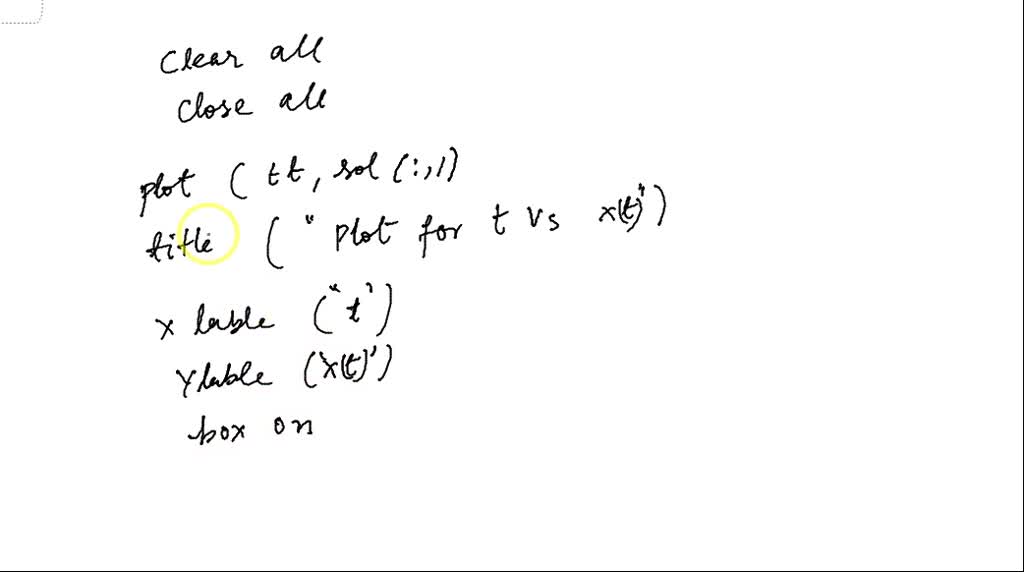 Clear all
Close all
plot ( tt, sol (:,1)
title ( " Plot for t vs x(t)" )
x lable ("t')
Ylable ('x(t)')
box on